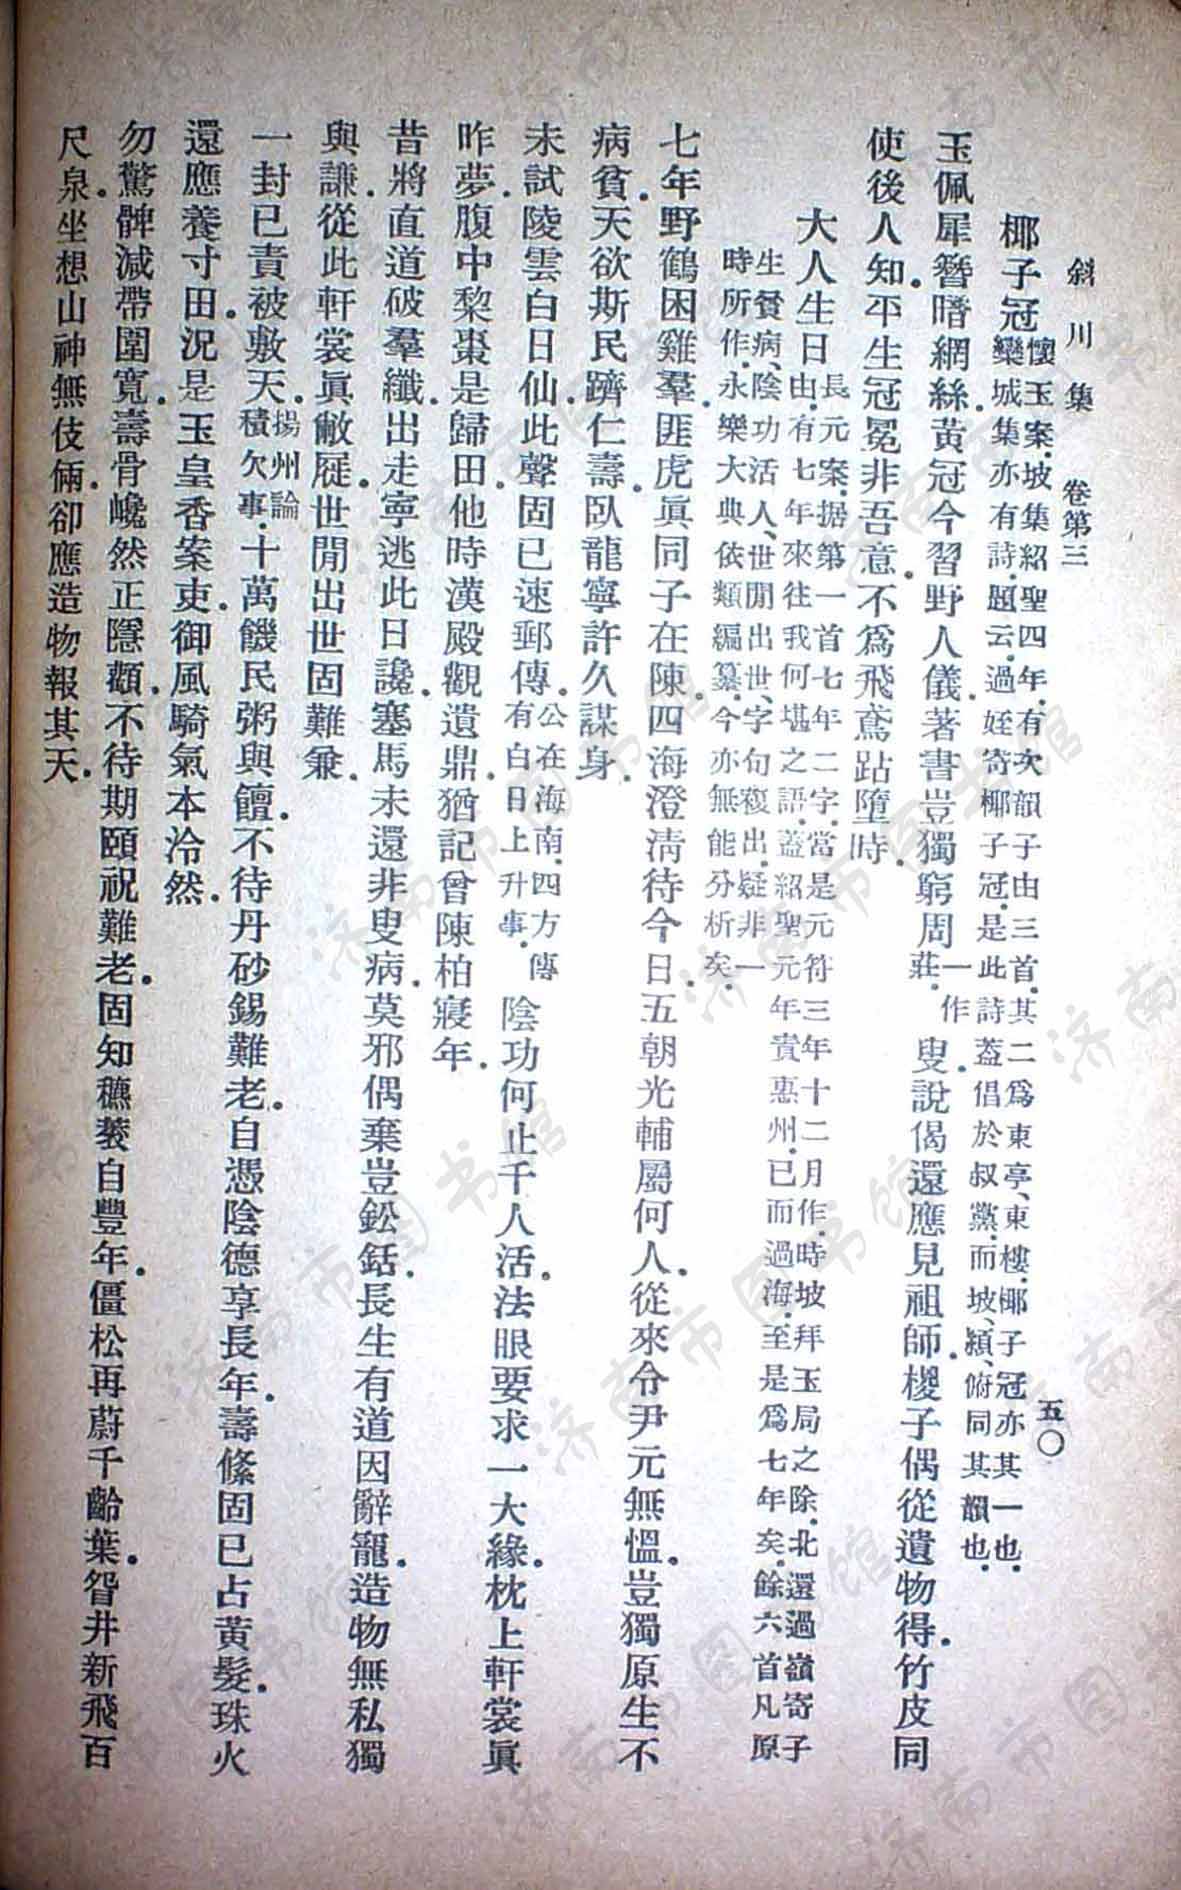 斜川集　卷第三　五〇
椰子冠
懷玉案坡集紹聖四年有次韻子由三首其二爲東亭東樓椰子冠亦其一也
欒城集亦有詩題云過姪寄椰子冠是此詩蓋倡於叔黨而坡潁俯同其韻也
玉佩犀簪暗網絲黃冠今習野人儀著書豈獨窮周
一作
莊
叟說偈還應見祖師椶子偶從遺物得竹皮同
使後人知平生冠冕非吾意不爲飛鳶跕墮時
大人生日
長元案据第一首七年二字當是元符三年十二月作時坡拜玉局之除北還過嶺寄子
由有七年來往我何堪之語蓋紹聖元年責惠州已而過海至是爲七年矣餘六首凡原
生餐病陰功活人世閒出世字句複出疑非一
時所作永樂大典依類編纂今亦無能分析矣
七年野鶴困雞羣匪虎眞同子在陳四海澄淸待今日五朝光輔屬何人從來令尹元無慍豈獨原生不
病貧天欲斯民躋仁壽臥龍寧許久謀身
未試陵雲白日仙此聲固已速郵傳
公在海南四方傳
有白日上升事
陰功何止千人活法眼要求一大緣枕上軒裳眞
昨夢腹中黎棗是歸田他時漢殿觀遺鼎猶記曾陳柏寢年
昔將直道破羣纖出走寧逃此日讒塞馬未還非叟病莫邪偶棄豈鈆銛長生有道因辭寵造物無私獨
與謙從此軒裳眞敝屣世閒出世固難兼
一封已責被敷天
揚州論
積欠事
十萬饑民粥與饘不待丹砂錫難老自憑陰德享長年壽絛固已占黃髮珠火
還應養寸田況是玉皇香案吏御風騎氣本泠然
勿驚髀減帶圍寬壽骨巉然正隱顴不待期頤祝難老固知穮蔉自豐年僵松再蔚千齡葉眢井新飛百
尺泉坐想山神無伎倆卻應造物報其天